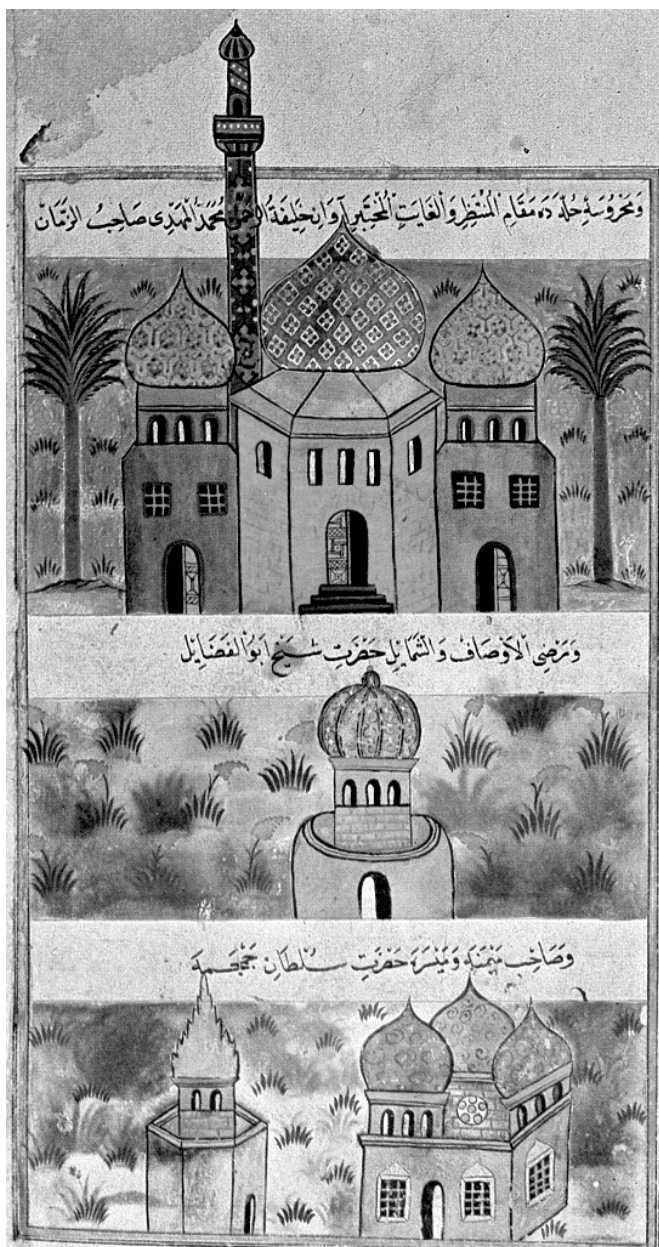 وَمَحْرُوسَهِٔ حُلّه دَه مَقَامِ الْمُنْتَظِرْ وَالْغَايِبِ الْمُخْتَبَرِ خَلِيفَةُ الرَّحْمٰن مُحَمَّدُ الْمَهْدِى صَاحِبُ الزَّمَانْ
وَمَرْضِى الْاَوْصَافْ وَالشَّمَايِلْ حَضْرَتِ شَيْخ اَبُو الْفَضَايِلْ
وَصَاحِبِ مَيْمَنَه وَمَيْسَرَه حَضْرَتِ سُلْطَانِ جُمْجُمَه